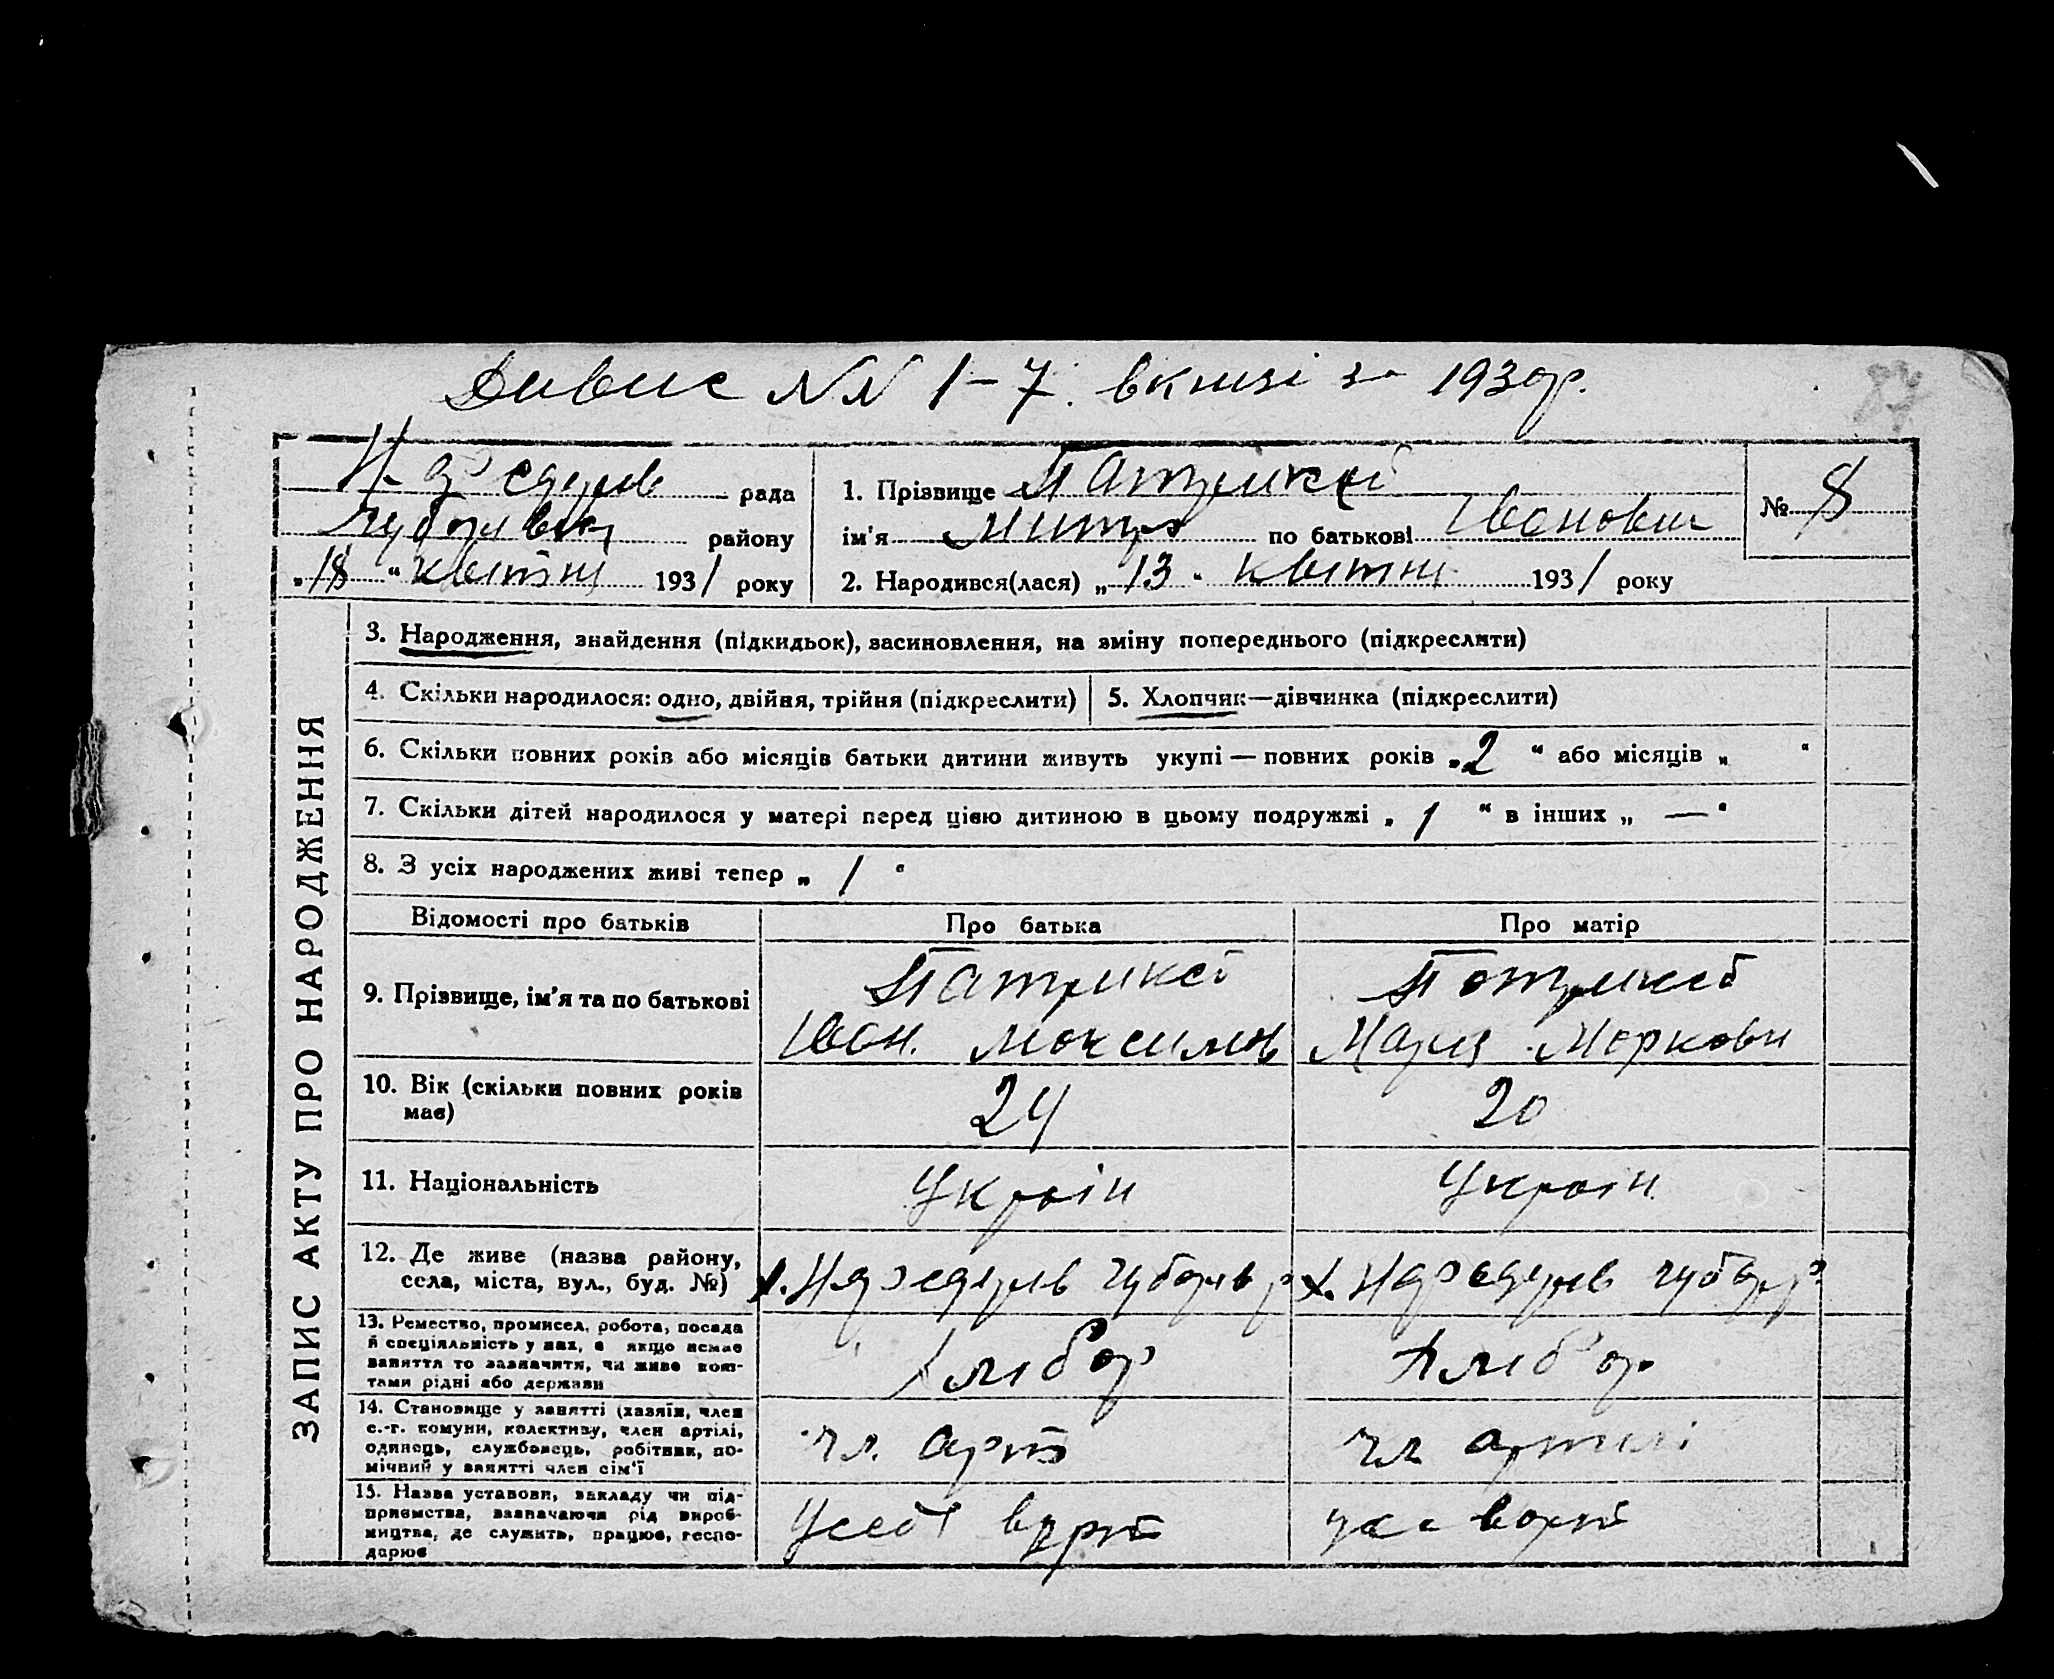 Дивис NN 1-7. в книзі за 1930 р.
87
рада
району
„18“ квітня 1931 року
1. Прізвище
ім'я Митро по батькові Іванович
2. Народився(лася) „13“ квітня 1931 року
№ 8
ЗАПИС АКТУ ПРО НАРОДЖЕННЯ
3. Народження, знайдення (підкидьок), засиновлення, на зміну попереднього (підкреслити)
4. Скільки народилося: одно, двійня, трійня (підкреслити)
5. Хлопчик—дівчинка (підкреслити)
6. Скільки повних років або місяців батьки дитини живуть укупі — повних років „2“ або місяців „ “
7. Скільки дітей народилося у матері перед цією дитиною в цьому подружжі „1“ в інших „—“
8. З усіх народжених живі тепер „1“
Відомості про батьків
Про батька
Про матір
9. Прізвище, ім'я та по батькові
Іван.
Марія Маркови
10. Вік (скільки повних років
має)
24
20
11. Національність
Україн
Україн
12. Де живе (назва району,
села, міста, вул., буд. №)
13. Ремество, промисел, робота, посада
й спеціяльність у них, а якщо немає
заняття то зазначити, чи живе кош-
тами рідні або держави
Хлібор
Хлібор
14. Становище у занятті (хазяїн, член
с.-г. комуни, колективу, член артілі,
одинець, службовець, робітник, по-
мічний у занятті член сім'ї
чл. арт
чл артілі
15. Назва установи, закладу чи під-
приємства, зазначаючи рід вироб-
ництва, де служить, працює, госпо-
дарює